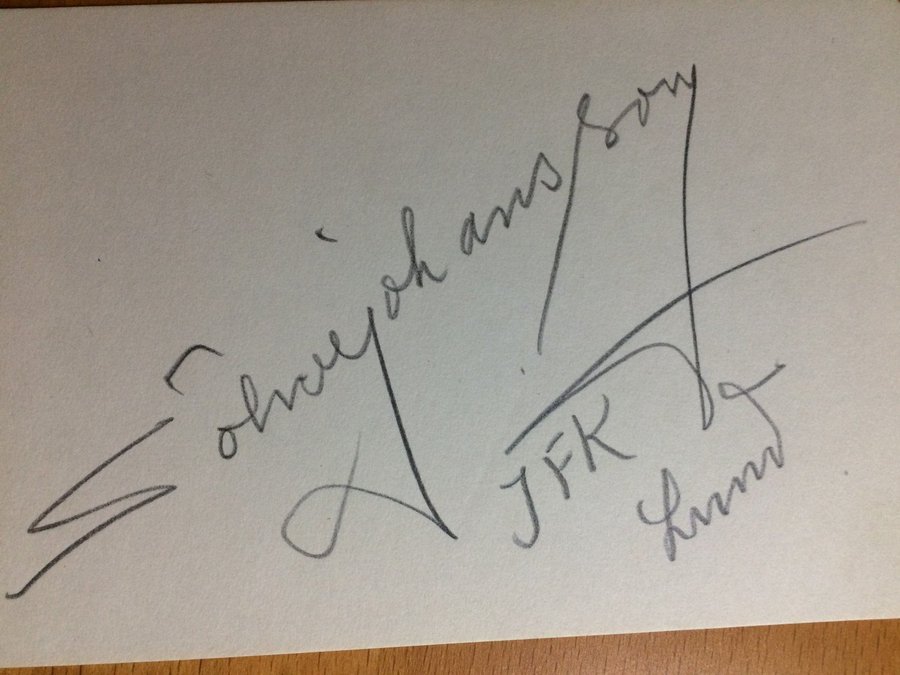 Sölve Johansson
IFK
Lund